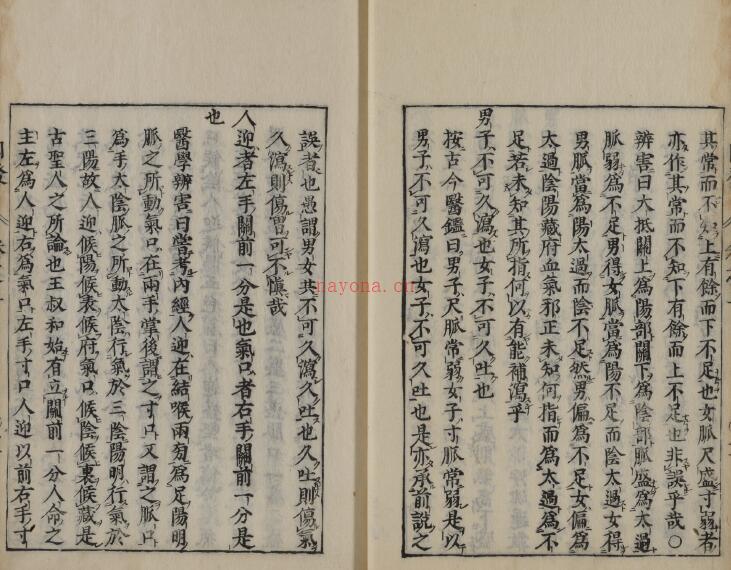 其常而不知上有餘而下不足也女脈尺盛寸弱者
亦作其常而不知下有餘而上不足也非誤乎哉〇
辨害曰大抵關上爲陽部關下爲陰部脈盛爲太過
脈弱爲不足男得女脈當爲陽不足而陰太過女得
男脈當爲陽太過而陰不足然男偏爲不足女偏爲
太過陰陽藏府血氣邪正未知何指而爲太過爲不
足若未知其所指何以有能補瀉乎
男子不可久瀉也女子不可久吐也
按古今醫鑑曰男子尺脈常弱女子寸脈常弱是以
男子不可久瀉也女子不可久吐也是亦承前說之
誤者也愚謂男女共不可久瀉久吐也久吐則傷氣
久瀉則傷胃可不愼哉
人迎者左手關前一分是也氣口者右手關前一分是
也
醫學辨害曰嘗考內經人迎在結喉兩旁爲足陽明
脈之所動氣口在兩手掌後謂之寸口又謂之脈口
爲手太陰脈之所動太陰行氣於三陰陽明行氣於
三陽故人迎候陽候表候府氣口候陰候裏候藏是
古聖人之所論也王叔和始有立關前一分人命之
主左爲人迎右爲氣口左手寸口人迎以前右手寸
rayona.cn